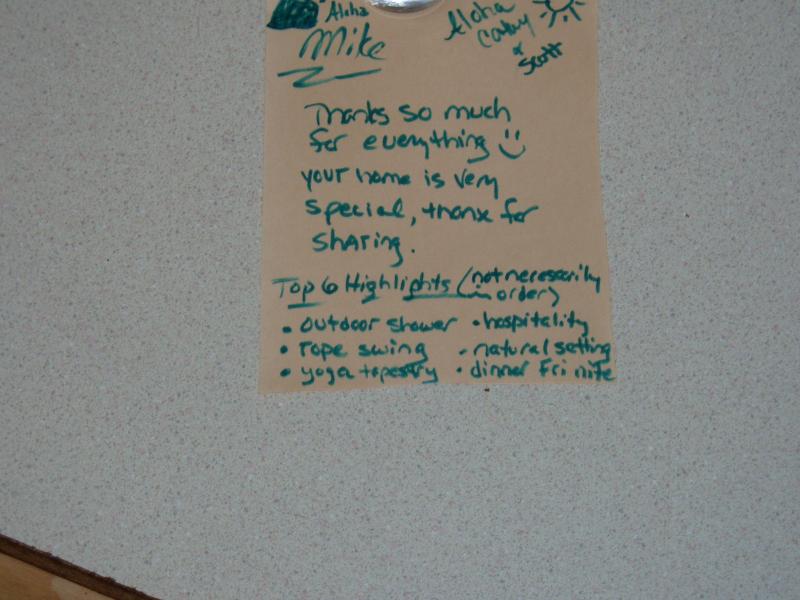 Aloha
Mike
Aloha
Cathy
& Scott
Thanks so much
for everything
your home is very
special, thanx for
sharing.
Top 6 Highlights (not necessarily
in order)
• outdoor shower • hospitality
• rope swing • natural setting
• yoga tapestry • dinner Fri nite